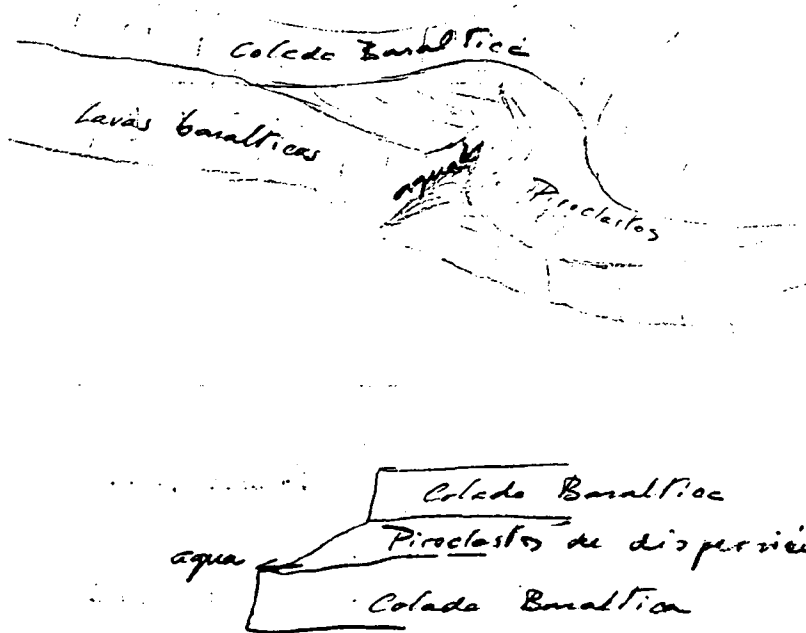 Colada Basáltica
Lavas basálticas
agua
Piroclastos
Colada Basáltica
Piroclastos de dispersión
agua
Colada Basáltica